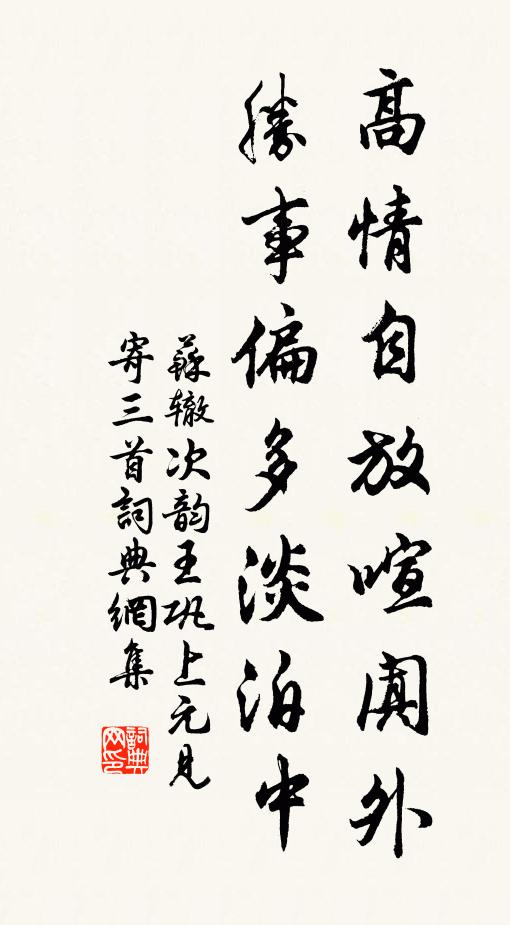 高情自放喧闐外
勝事偏多淡泊中
蘇轍次韵王巩上元見
寄三首詞典網集
詞典网印